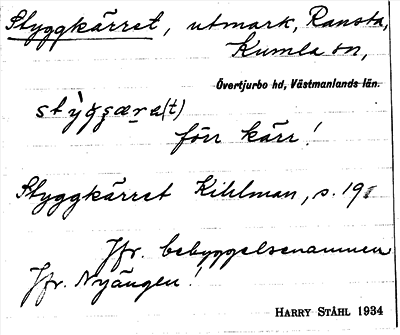 Styggkärret, utmark, Ransta,
Kumla sn,
Övertjurbo hd, Västmanlands län.
förr kärr!
Styggkärret Kihlman, s. 19
Jfr. bebyggelsenamnen
Jfr. Nyängen!
HARRY STÅHL 1934